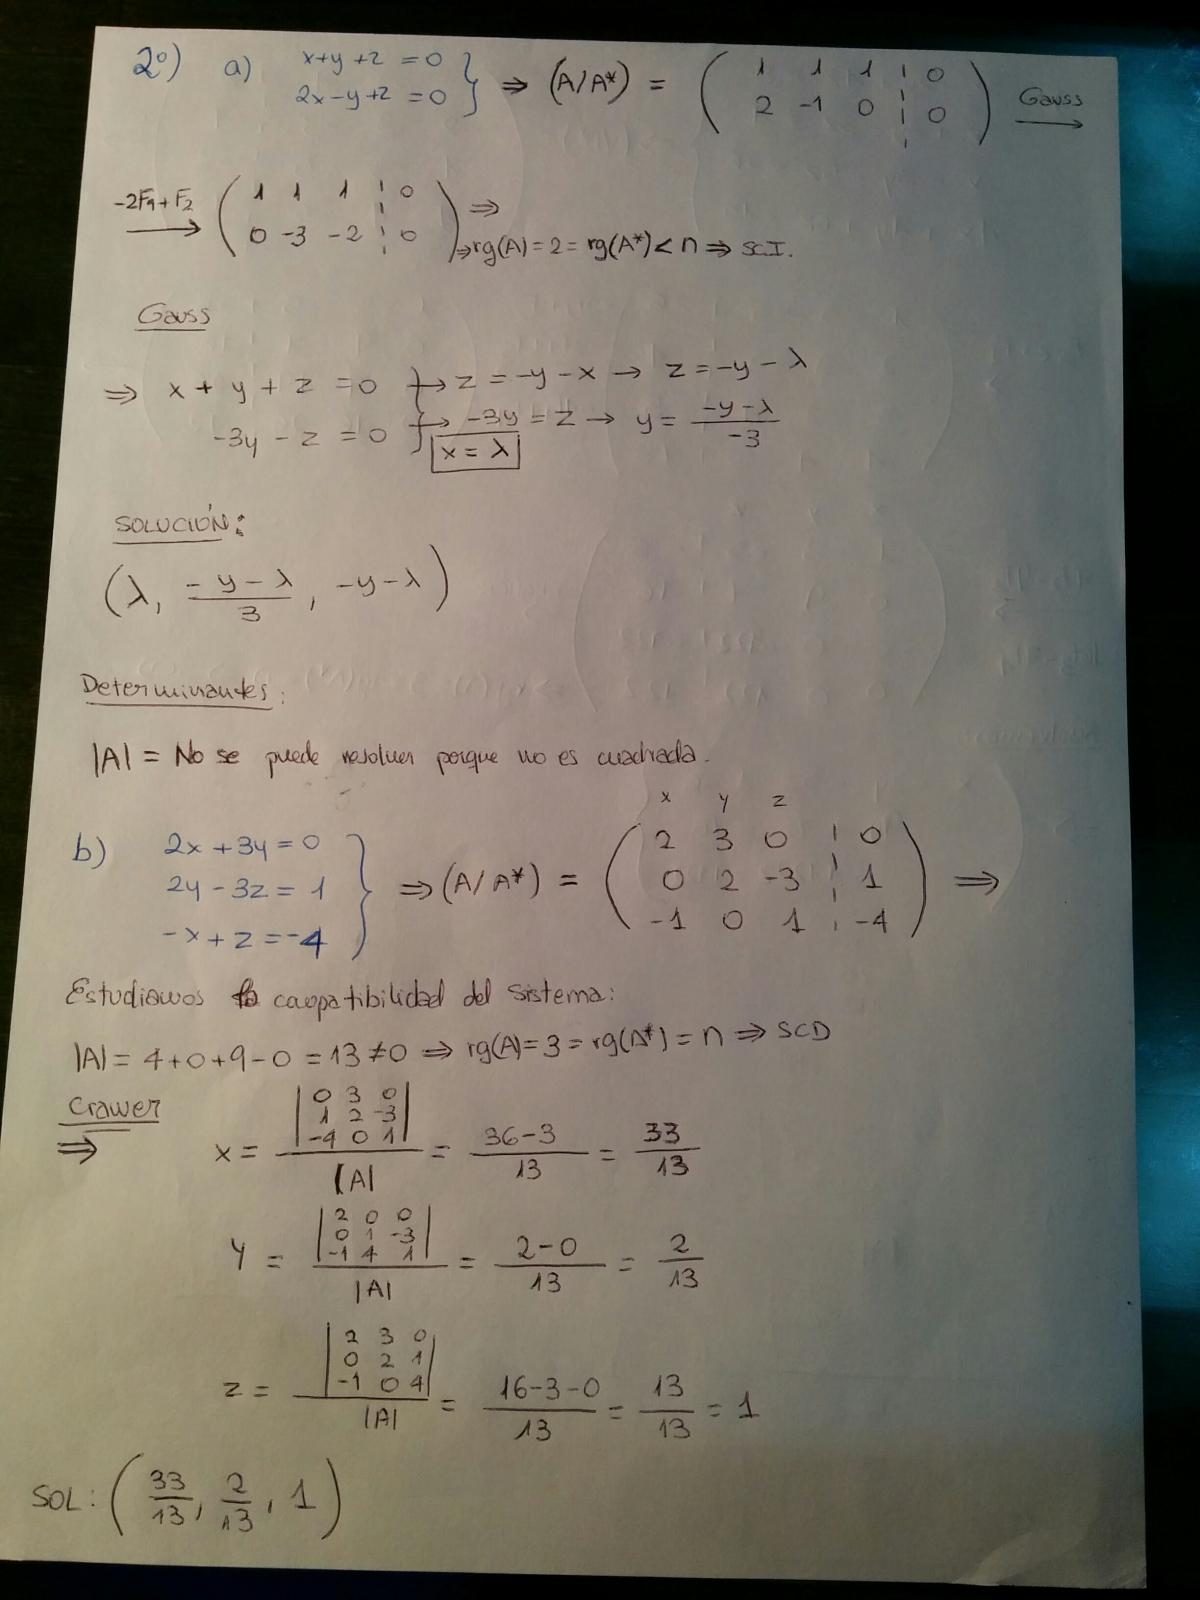 2º) a) x+y+z = 0
2x-y+z = 0 } ⇒ (A/A*) = ( 1 1 1 ¦ 0
2 -1 0 ¦ 0 ) Gauss →
-2F1+F2 → ( 1 1 1 ¦ 0
0 -3 -2 ¦ 0 ) ⇒
⇒ rg(A) = 2 = rg(A*) < n ⇒ SCI.
Gauss
⇒ x + y + z = 0 } → z = -y - x → z = -y - λ
-3y - z = 0 } → -3y = z → y = (-y-λ)/-3
x = λ
SOLUCIÓN:
(λ, (-y-λ)/3, -y-λ)
Determinantes:
|A| = No se puede resolver porque no es cuadrada.
x y z
b) 2x + 3y = 0
2y - 3z = 1
-x + z = -4 } ⇒ (A/A*) = ( 2 3 0 ¦ 0
0 2 -3 ¦ 1
-1 0 1 ¦ -4 ) ⇒
Estudiamos la compatibilidad del sistema:
|A| = 4+0+9-0 = 13 ≠ 0 ⇒ rg(A) = 3 = rg(A*) = n ⇒ SCD
Cramer
⇒ x = |0 3 0
1 2 -3
-4 0 1| / |A| = (36-3)/13 = 33/13
y = |2 0 0
0 1 -3
-1 4 1| / |A| = (2-0)/13 = 2/13
z = |2 3 0
0 2 1
-1 0 4| / |A| = (16-3-0)/13 = 13/13 = 1
SOL: (33/13, 2/13, 1)